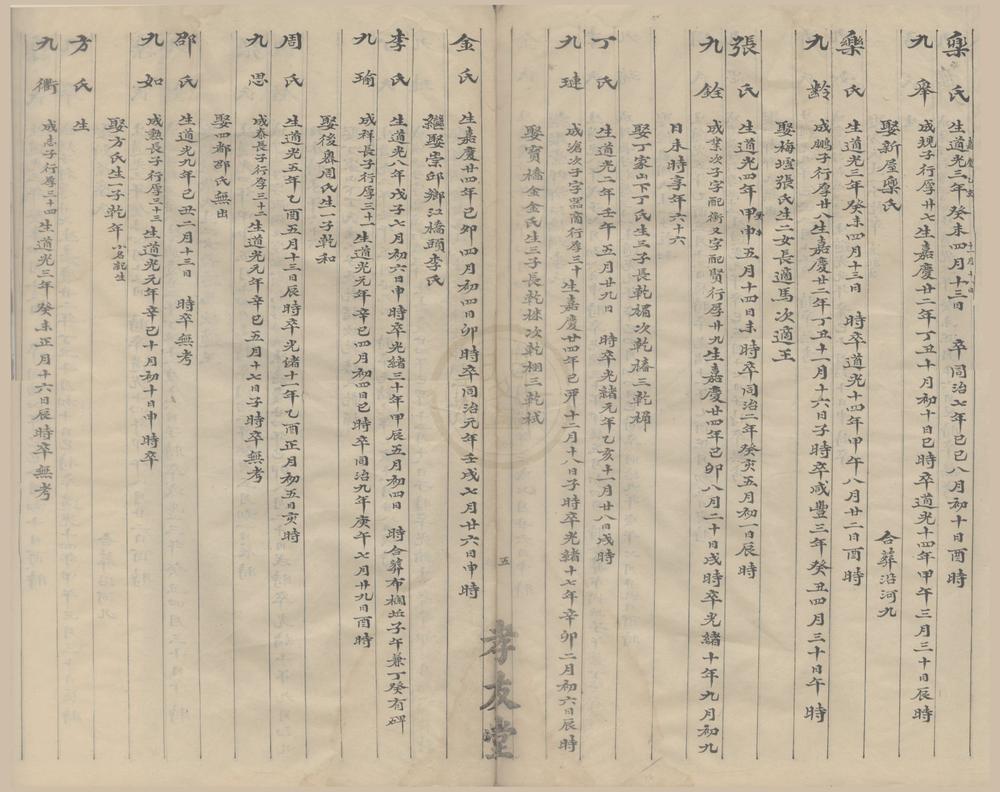 欒氏 生道光三年癸未四月十三日 卒同治七年己巳八月初十日酉時
九皋 成現子行厚廿七生嘉慶廿二年丁丑十月初十日巳時卒道光十四年甲午三月三十日辰時
娶新屋欒氏 合葬沿河九
欒氏 生道光三年癸未四月十三日 時卒道光十四年甲午八月廿二日酉時
九齡 成鵬子行厚廿八生嘉慶廿二年丁丑十一月十六日子時卒咸豐三年癸丑四月三十日午時
娶梅墟張氏生二女長適馬次適王
張氏 生道光四年甲申五月十四日未時卒同治二年癸亥五月初一日辰時
九銓 成業次子字配衡又字配賢行厚廿九生嘉慶廿四年己卯八月二十日戌時卒光緒十年九月初九
日未時享年六十六
娶丁家山下丁氏生三子長乾楣次乾椿三乾梯
丁氏 生道光二年壬午五月廿九日 時卒光緒元年乙亥十一月廿八日戌時
九璉 成滄次子字器商行厚三十生嘉慶廿四年己卯十二月十八日子時卒光緒十七年辛卯二月初六日辰時
娶寶橋金金氏生三子長乾株次乾栩三乾栻
五
孝友堂
金氏 生嘉慶廿四年己卯四月初四日卯時卒同治元年壬戌七月廿六日申時
繼娶崇邱鄉江橋頭李氏
李氏 生道光八年戊子七月初六日申時卒光緒三十年甲辰五月初四日 時合葬布欄並子午兼丁癸有碑
九瑜 成祥長子行厚三十一生道光元年辛巳四月初四日巳時卒同治九年庚午七月廿九日酉時
娶後𢊬周氏生一子乾和
周氏 生道光五年乙酉五月十三日辰時卒光緒十一年乙酉正月初五日亥時
九思 成泰長子行厚三十二生道光元年辛巳五月十七日子時卒無考
娶四都邵氏無出
邵氏 生道光九年己丑二月十三日 時卒無考
九如 成勲長子行厚三十三生道光元年辛巳十月初十日申時卒
娶方氏生一子乾年 小名乾生
方氏 生
九衢 成志子行厚三十四生道光三年癸未正月十六日辰時卒無考